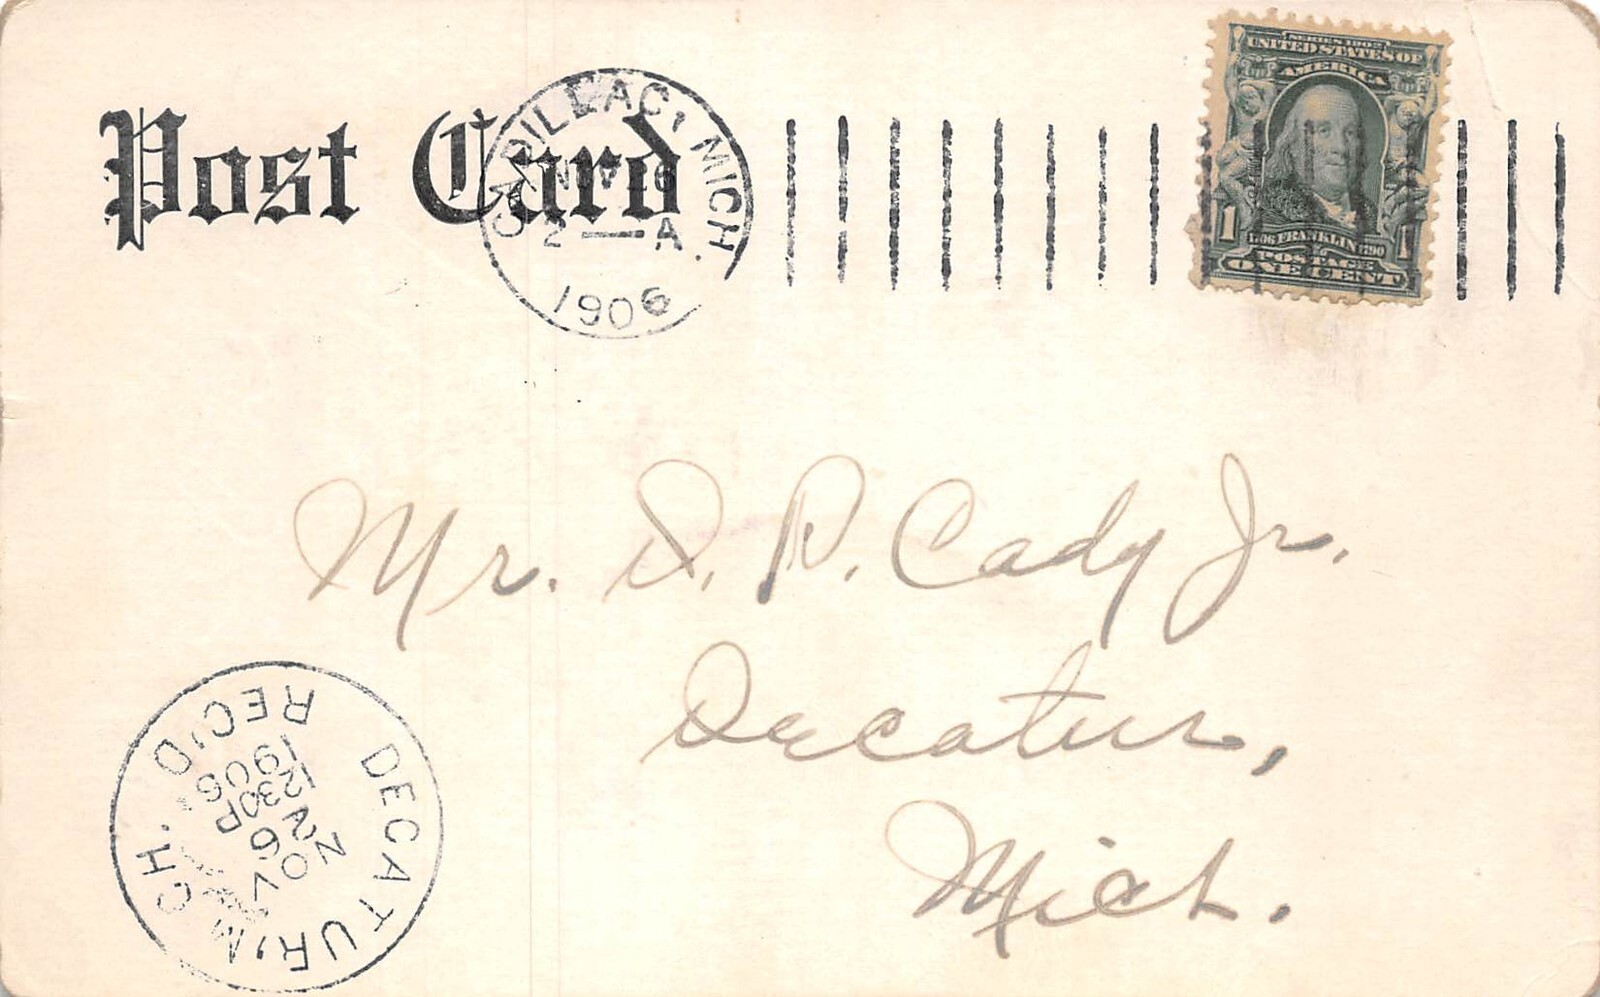 Post Card
CADILLAC, MICH.
NOV 26
2 — A
1906
SERIES 1902
UNITED STATES OF
AMERICA
1 1
1706 FRANKLIN 1790
POSTAGE
ONE CENT
Mr. S. P. Cady Jr.
Decatur,
Mich.
DECATUR, MICH.
NOV
26
1230P
1906
REC'D.